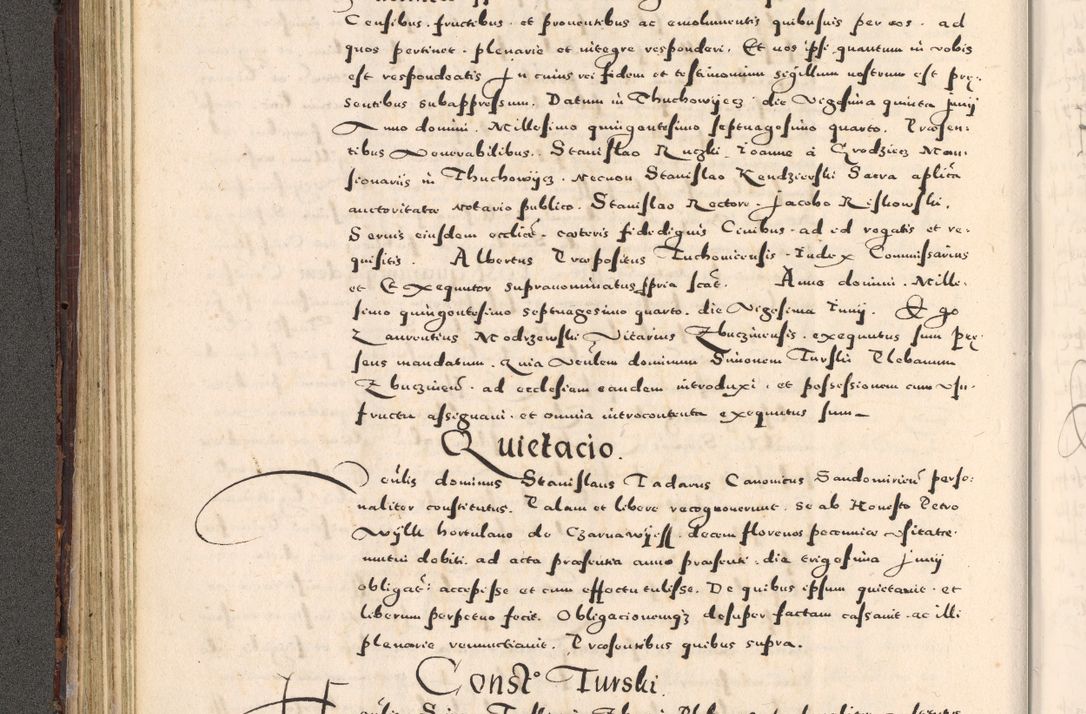 Censibus. fructibus. et proventibus ac emolumentis quibusvis per eos. ad
quos pertinet. plenarie et integre responderi. Et vos ipsi quantum in vobis
est respondeatis In cuius rei fidem et testimonium sigillum nostrum est pre-
sentibus subappressum. Datum in Thuchowijecz. die vigesima quinta Junij
Anno domini. Millesimo quingentesimo septuagesimo quarto. Præsen-
tibus Venerabilibus. Stanislao Ruczki. Joanne à Grodziecz Man-
sionariis in Thuchowijcz. Necnon Stanislao Kendzierski Sacra aplica
auctoritate Notario publico. Stanislao Rectore. Jacobo Riskowski.
Servis eiusdem eccliæ. cæteris fidedignis Civibus. ad id rogatis et re-
quisitis. Albertus Præpositus Tuchoviensis. Iudex Commissarius
et Exequutor supranominatus ppria scat. Anno domini. Mille-
simo quingentesimo septuagesimo quarto. die Vigesima Iunij. Ego
Laurentius Modrzewski Vicarius Zbuczinensis. exequutus sum pre-
sens mandatum. quia Venlem dominum Simonem Turski Plebanum
Zbuczinen. ad ecclesiam eandem introduxi. et possessionem cum usu-
fructu assignavi. et omnia introcontenta exequutus sum
Quietacio.
Venlis dominus Stanislaus Tadarus Canonicus Sandomirien perso-
naliter constitutus. Palam et libere recognoverunt. se ab Honesto Petro
Wylk hortulano de Czarnawijess. decem florenos pecuniæ usitatæ.
mutui debiti. ad acta præsentia anno præsenti. die trigesima Junij
obligat: accepisse et cum effectu tulisse. De quibus ipsum quietavit. et
liberum perpetuo fecit. Obligacionemqz desuper factam cassavit. ac illi
plenarie renunctiavit. Præsentibus quibus supra.
Const° Turski